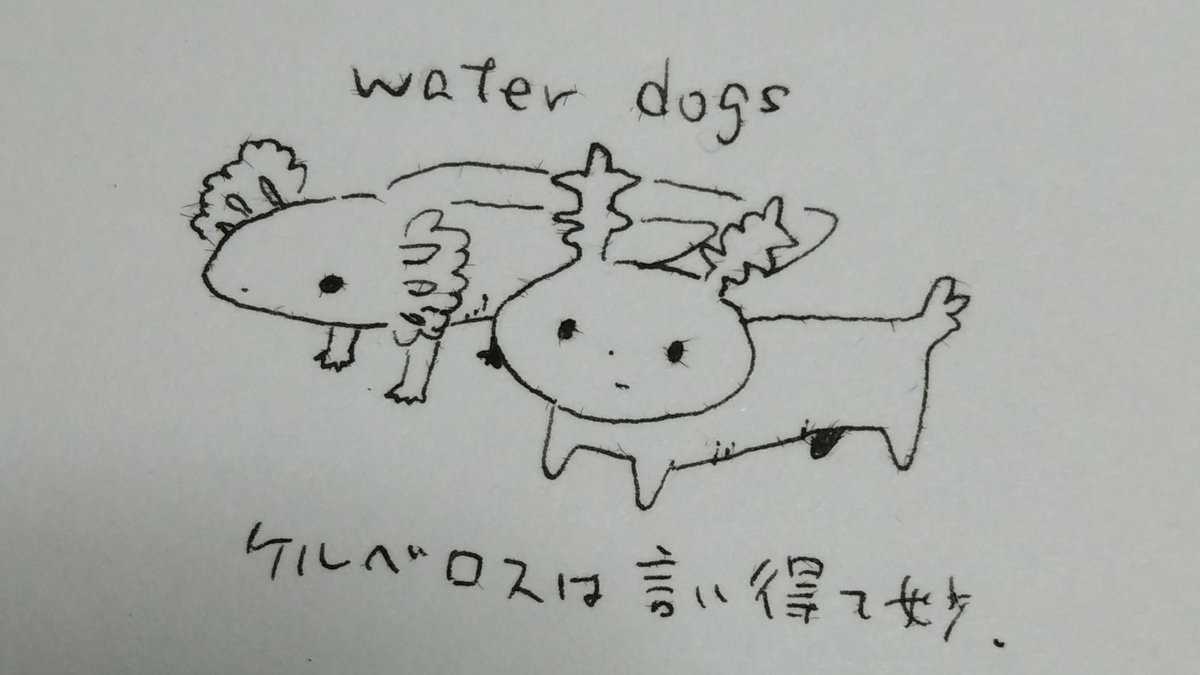 water dogs
ケルベロスは言い得て妙.